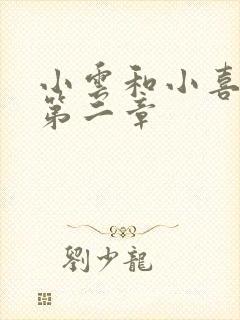 小雲和小喜
第二章
劉少龍